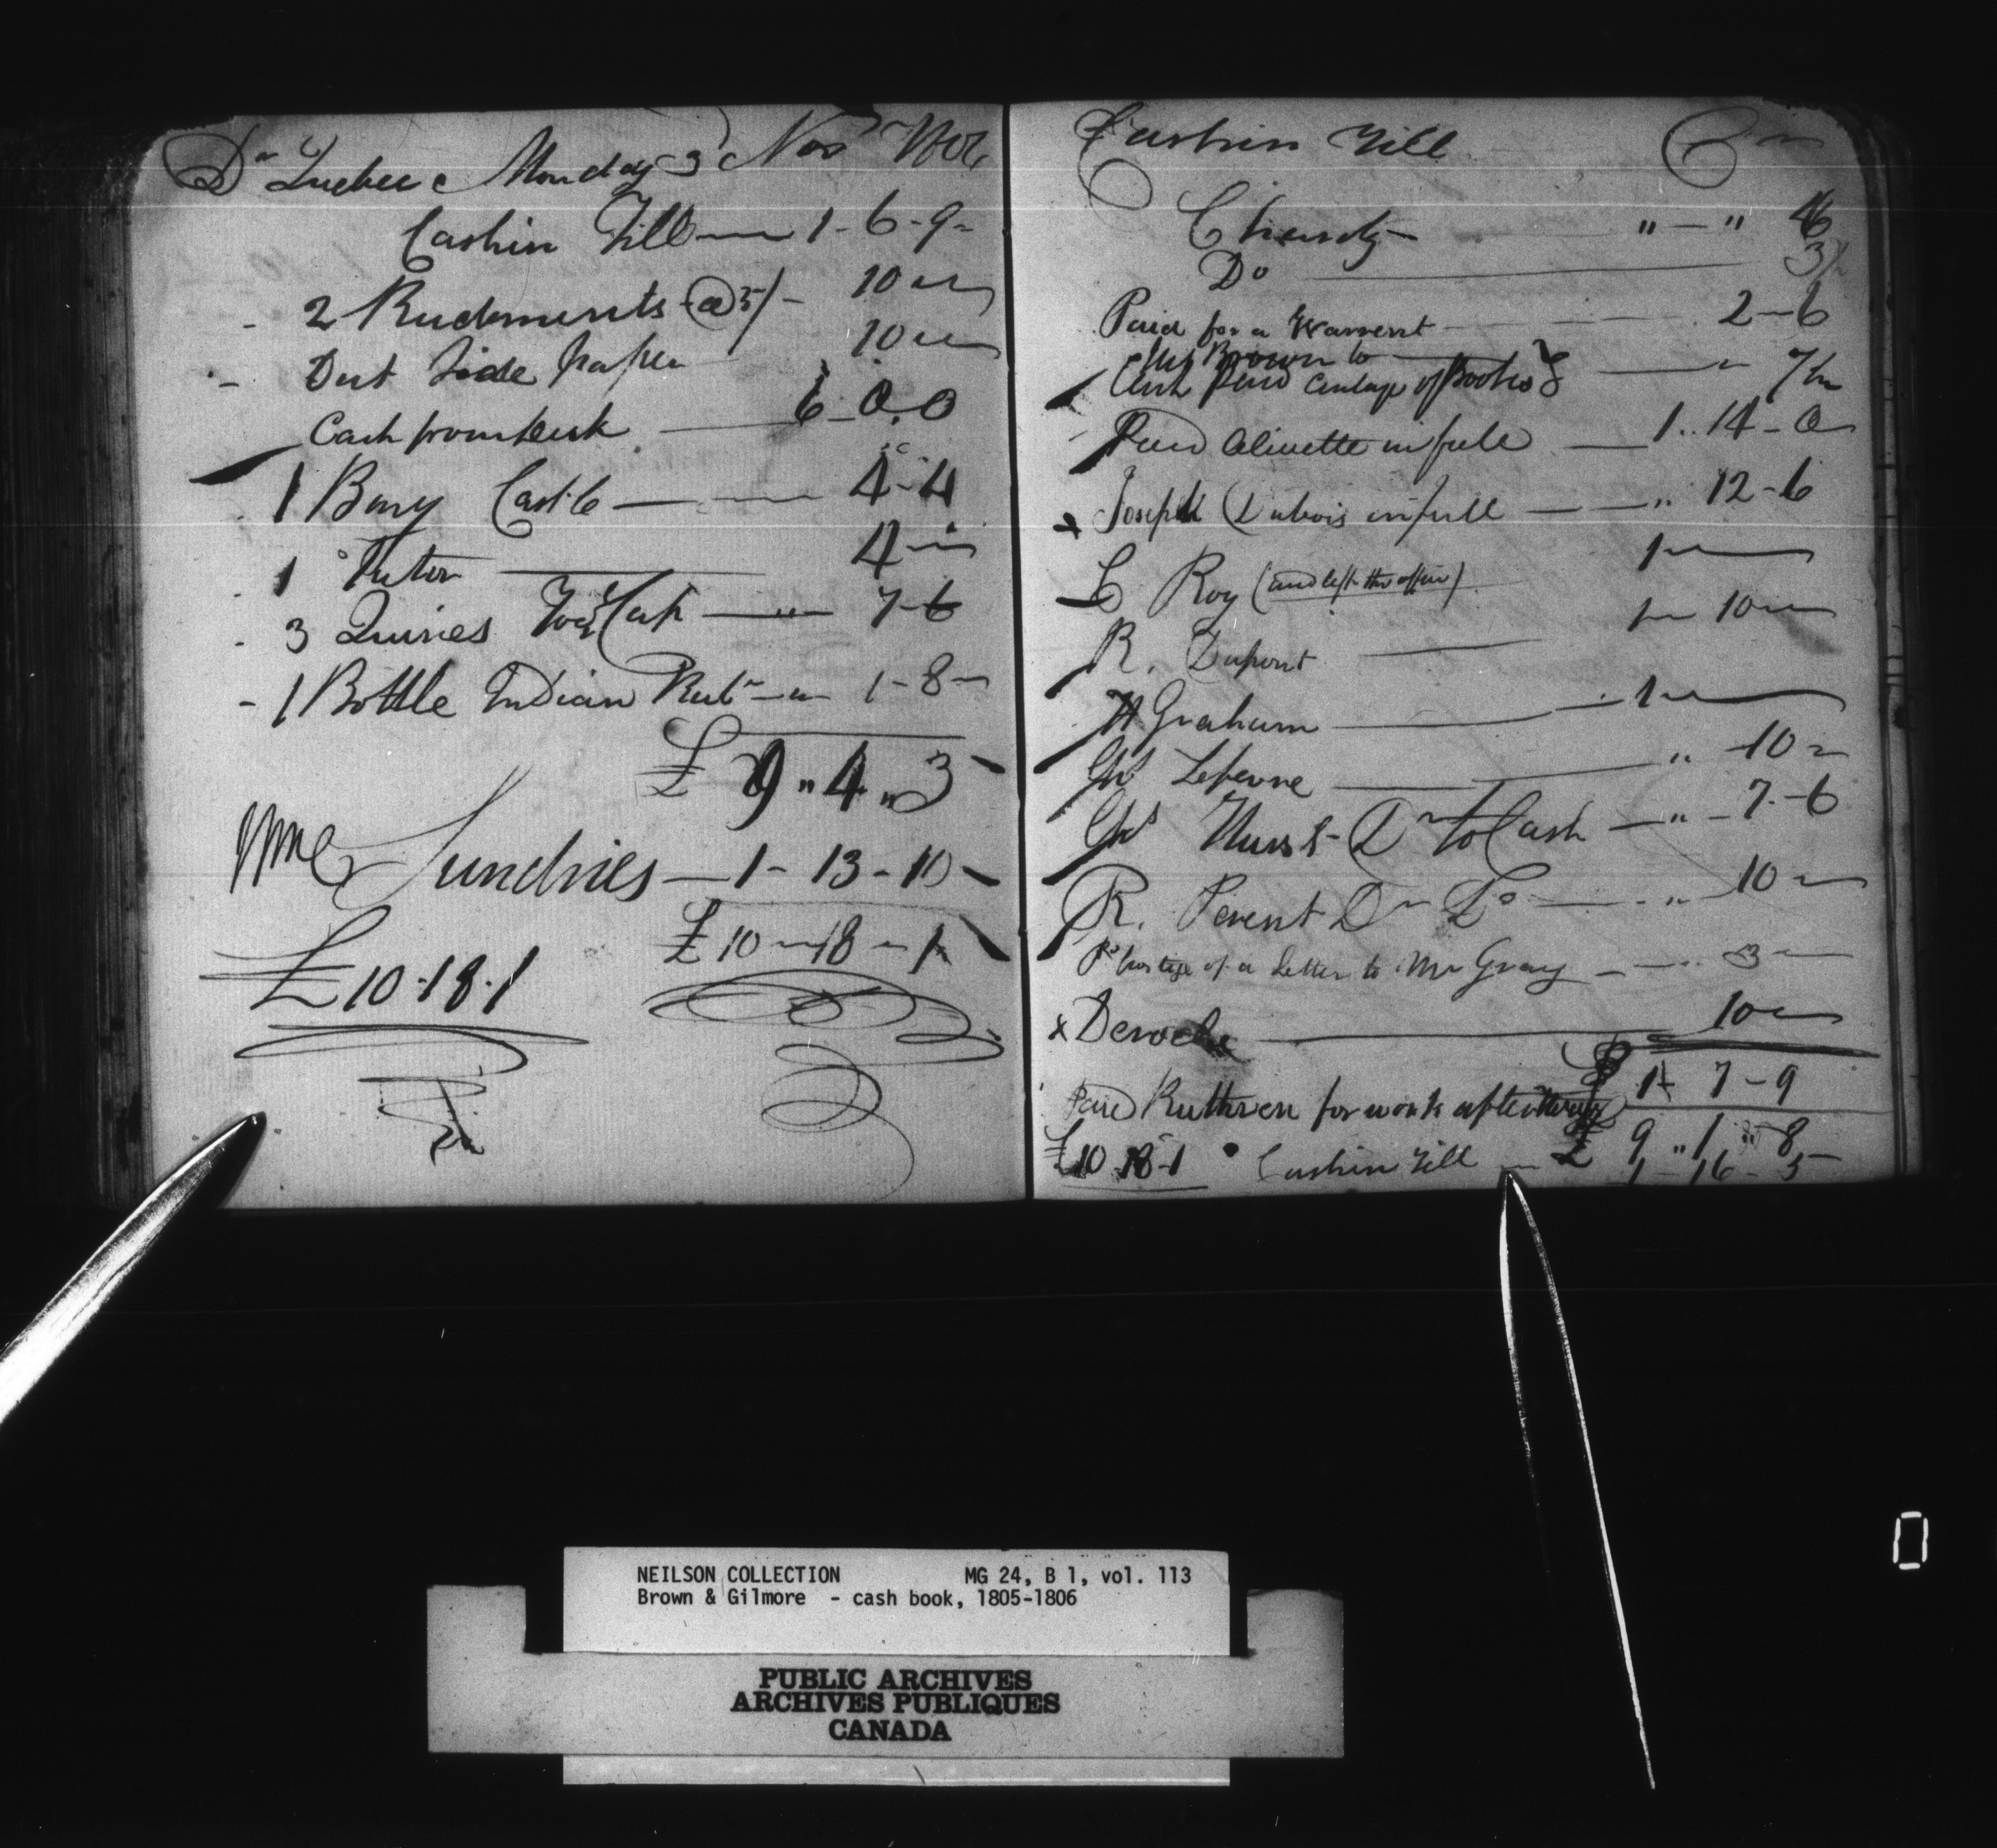 Dr Quebec Monday 3 Novr 1806
Cash in Till — 1-6-9
- 2 Rudiments @ 5/- 10
- Out Side paper 10
Cash from Desk — 6-0.0
1 Bury Castle — 4-4
1 Tutor — 4
- 3 Quires Foolscap — " — 7-6
- 1 Bottle Indian Rubr — " — 1-8
£ 9 " 4 " 3
Sundries — 1-13-10
£ 10-18-1
£10.18.1
Cash in Till Cr
Charity — " — " 6
Do — 3
Paid for a Warrent — 2-6
Brown to
Cash paid Cartage of Books — " 7/
Paid Alinette in full — 1..14-0
x Joseph Dubois in full — " 12-6
L Roy (and left the office) 1
R. Dupont — 1 10
H Graham — 1
Chs Lefevre — " 10
Chs Hurst Dr to Cash — " 7-6
R. Parent Dr Do — " 10
Postage of a Letter to Mr Gray — 3
x Deroche — 10
Paid Ruthven for work after hours 7-9
£ 9 " 1 " 8
£10 18-1 Cash in Till — 1-16-5
NEILSON COLLECTION MG 24, B 1, vol. 113
Brown & Gilmore - cash book, 1805-1806
PUBLIC ARCHIVES
ARCHIVES PUBLIQUES
CANADA